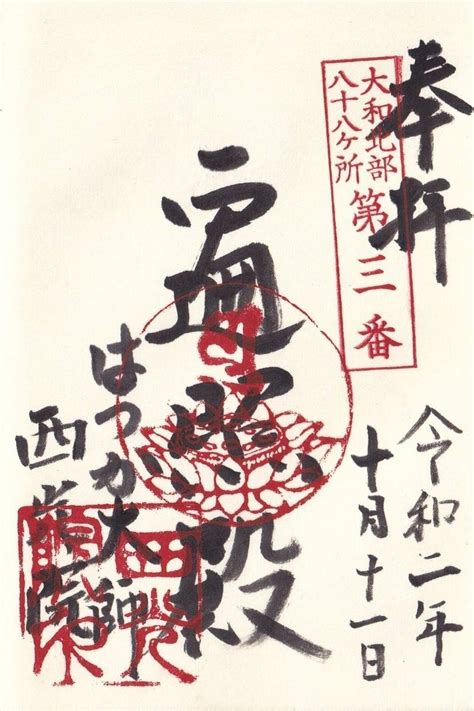 奉拝
大和北部
八十八ヶ所
第三番
遍照殿
はだか大師
西光院
令和二年
十月十一日